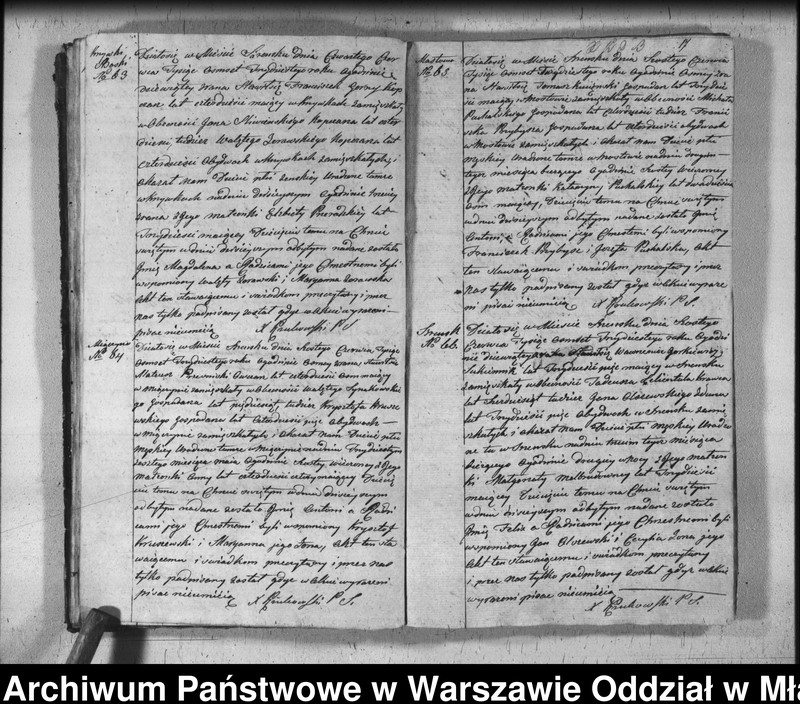 No 63
Działo się w Mieście Szreńsku dnia Czwartego Czer
wca Tysiąc Osmset Trzydziestego roku o godzinie
dziewiątey zrana Stawił się Franciszek Gorny Kop
czarz lat czterdzieści maiący w Krzywkach zamięszkały
w Obecności Jana Kopczarza lat czter
dzieści tudzież Walętego Zorawskiego Kopczarza lat
czterdzieści Obydwoch w Krzywkach zamięszkałych i
okazał nam Dziecię płci żeńskiey Urodzone tamże
w Krzywkach na dniu dzisieyszym o godzinie trzeciey
zrana z Jego małżonki Elżbiety lat
Trzydzieści maiącey Dziecięciu temu na Chrzcie
świętym w dniu dzisieyszym odbytym nadane zostało
Jmię Magdalena a Rodzicami jego Chrzestnemi byli
wspomniony Walęty Zorawski i Maryanna Zorawska
Akt ten Stawaiącemu i świadkom przeczytany i przez
nas tylko podpisany został gdyż w Akcie wyrażeni
pisać nieumieią X P S
No 64
Działo się w Mieście Szreńsku dnia Szostego Czerwca Tysiąc
Osmset Trzydziestego roku o godzinie Osmey zrana Stawił się
Mateusz Owczarz lat czterdzieści Osm maiący
w zamięszkały w Obecności Walętego
go Gospodarza lat pięćdziesiąt tudzież Krzysztofa Krusze
wskiego Gospodarza lat czterdzieści pięć Obydwoch
w zamięszkałych i okazał nam Dziecię płci
męskiey Urodzone tamże w na dniu Trzydziestym
zeszłego miesiąca maia o godzinie szostey wieczorney z Jego
małżonki Anny lat czterdzieści cztery maiącey Dziecię
ciu temu na Chrzcie świętym w dniu dzisieyszym
odbytym nadane zostało Jmię Antoni a Rodzi
cami jego Chrzestnemi byli wspomniony Krzysztof
Kruszewski i Maryanna jego Zona, Akt ten sta
waiącemu i świadkom przeczytany i przez nas
tylko podpisany został gdyż w Akcie wyrażeni
pisać nieumieią X P S.
17
Mostowo
No 65.
Działo się w Mieście Szreńsku dnia Szostego Czerwca
Tysiąc Osmset Trzydziestego roku o godzinie Osmey zra
na Stawił się Tomasz Gospodarz lat Trzydzie
ści maiący w Mostowie zamięszkały w Obecności Michała
Puchalskiego Gospodarza lat czterdzieści tudzież Franci
szka Przybysza Gospodarza lat czterdzieści Obydwoch
w Mostowie zamięszkałych i okazał nam Dziecię płci
męskiey Urodzone tamże w Mostowie na dniu drugim
tegoż miesiąca bieżącego o godzinie szostey wieczorney
z Jego małżonki Katarzyny Puchalskiey lat dwadzieścia
osm maiącey, Dziecięciu temu na Chrzcie świętym
w dniu dzisieyszym odbytym nadane zostało Jmię
Antoni, a Rodzicami jego Chrzestnemi byli wspomniony
Franciszek Przybysz i Jozefa Puchalska, Akt
ten Stawaiącemu i świadkom przeczytany i przez
nas tylko podpisany został gdyż w Akcie wyraże
ni pisać nieumieią X P S.
Szrensk
No 66.
Działo się w Mieście Szreńsku dnia Szostego
Czerwca Tysiąc Osmset Trzydziestego roku o godzi
nie dziewiątey zrana Stawił się Wawrzeniec
Sukiennik lat Trzydzieści pięć maiący w Szreńsku
zamięszkały w Obecności Tadeusza Krawca
lat sześćdziesiąt tudzież Jana Olszewskiego
lat Trzydzieści pięć Obydwoch w Szreńsku zamię
szkałych i okazał nam Dziecię płci męskiey Urodzo
ne tu w Szreńsku na dniu trzecim tegoż miesiąca
bieżącego o godzinie drugiey w nocy z Jego małżon
ki Małgorzaty lat Trzydzieści
maiącey Dziecięciu temu na Chrzcie świętym
w dniu dzisieyszym odbytym nadane zostało
Jmię Felix a Rodzicami jego Chrzestnemi byli
wspomniony Jan Olszewski i Cecylia Zona jego
Akt ten Stawaiącemu i świadkom przeczytany
i przez nas tylko podpisany został gdyż w Akcie
wyrażeni pisać nieumieią
X P S.
Archiwum Państwowe w Warszawie Oddział w Mła